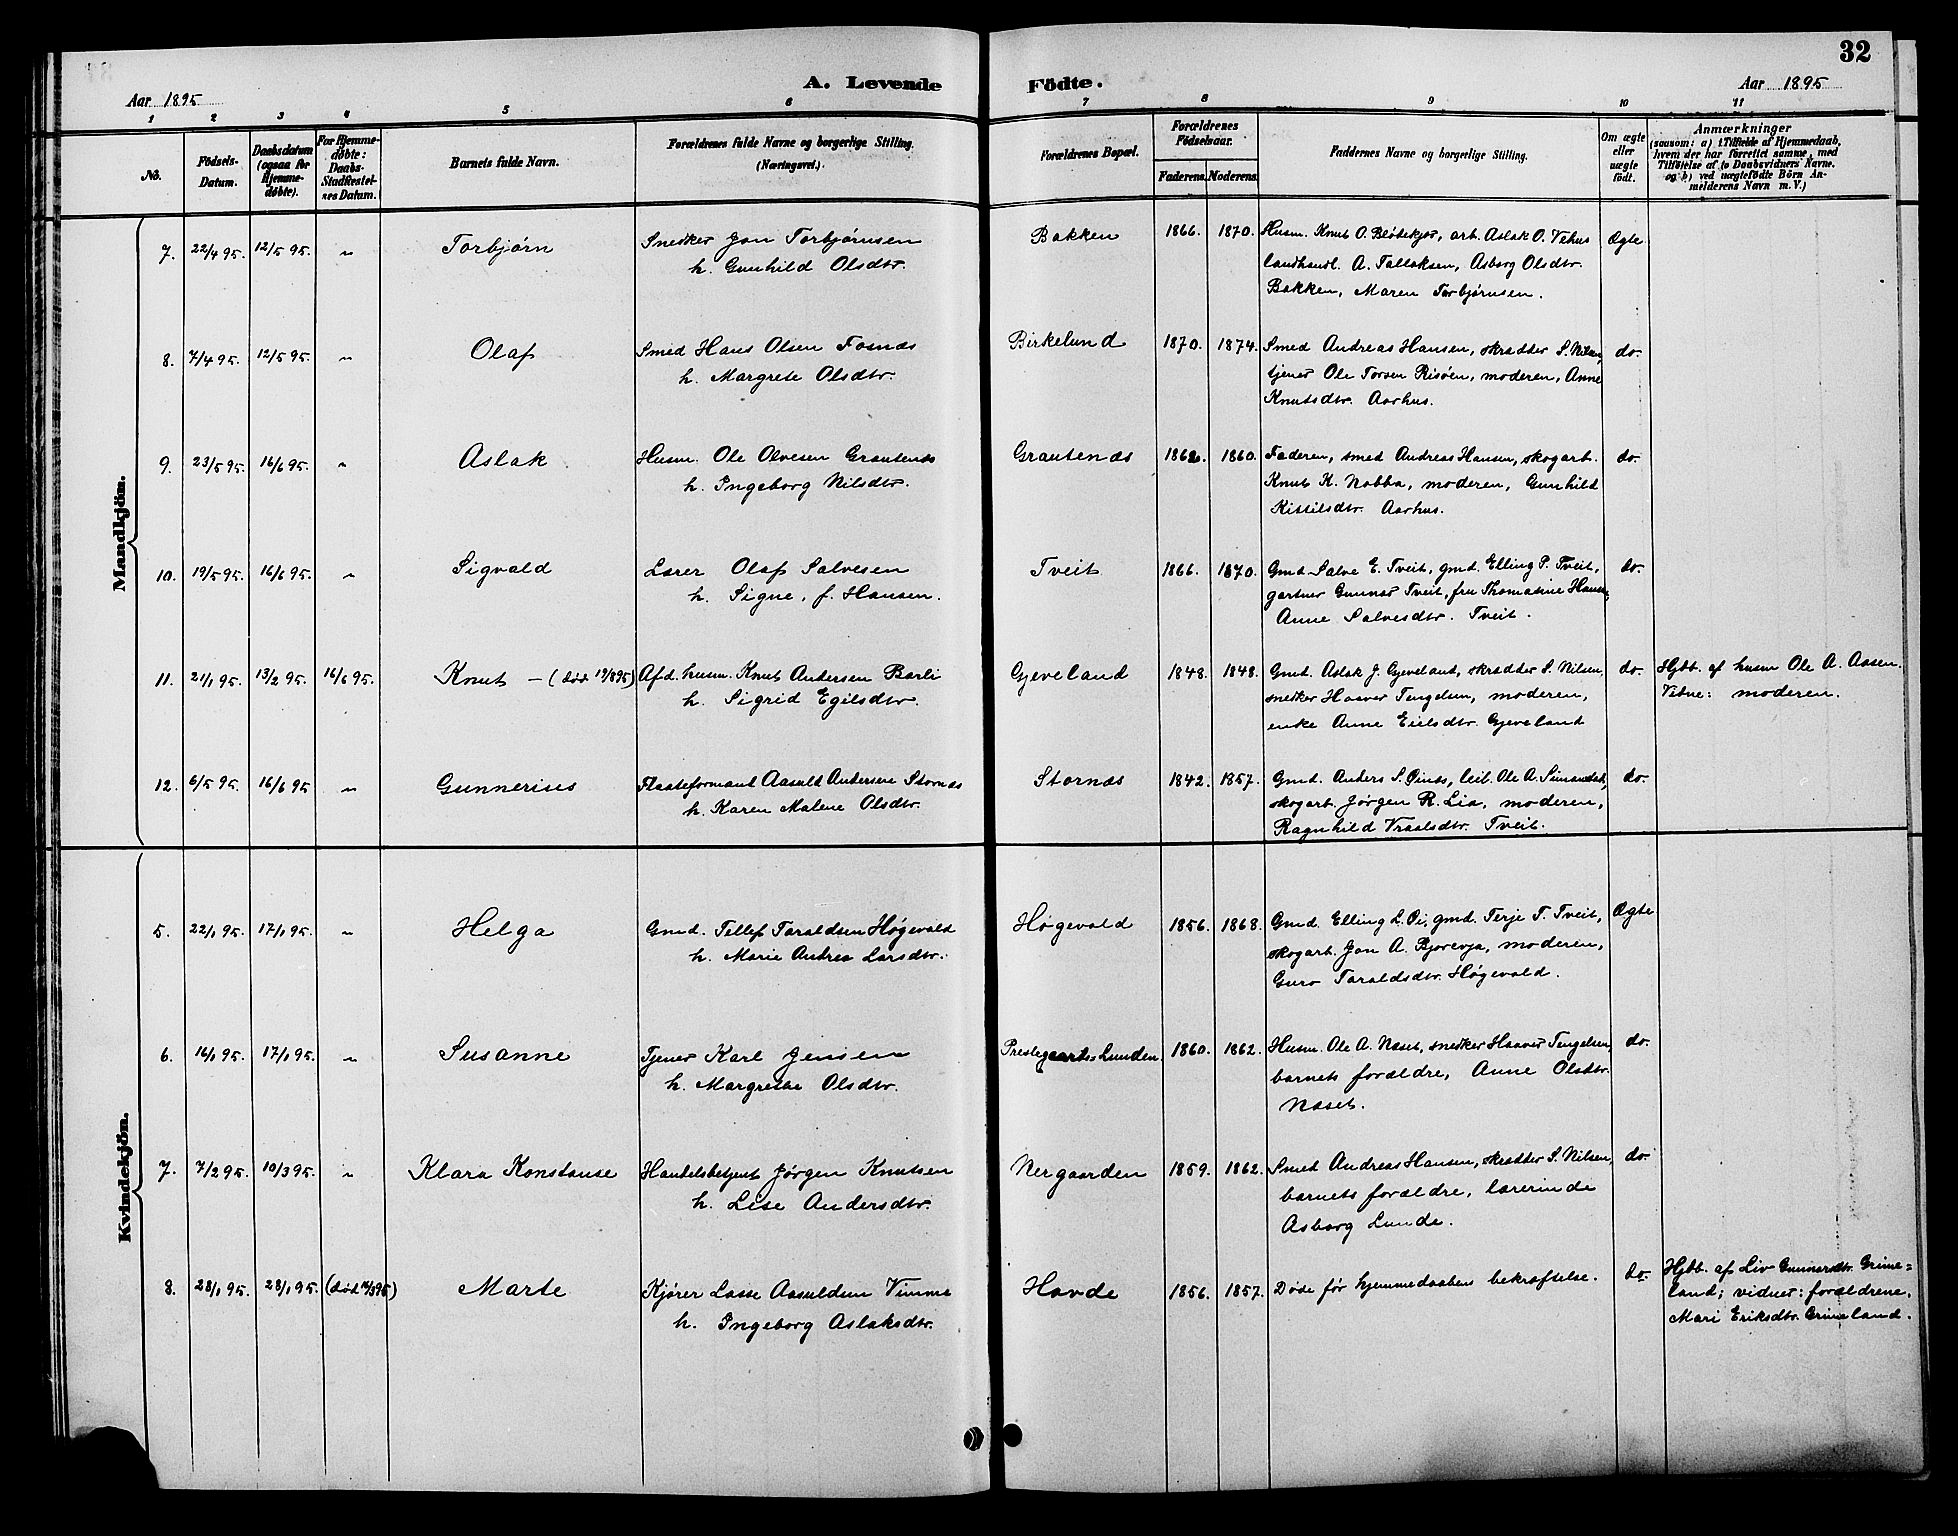 32
A. Levende Födte.
Aar 1895
Aar 1895
1 2 3 4 5 6 7 8 9 10 11
No.
Födsels-Datum.
Daabsdatum (ogsaa for Hjemmedöbte).
For Hjemmedöbte: Daabs-Stadfæstelses Datum.
Barnets fulde Navn.
Forældrenes fulde Navne og borgerlige Stilling. (Næringsvei.)
Forældrenes Bopæl.
Forældrenes Födselsaar.
Faderens. Moderens.
Faddernes Navne og borgerlige Stilling.
Om ægte eller uægte födt.
Anmærkninger
(saasom: a) i Tilfælde af Hjemmedaab, hvem der har forrettet samme, med Tilföielse af to Daabsvidners Navne. og b) ved uægtefödte Börn Anmelderens Navn m. V.)
Mandkjön.
7. 22/4 95. 12/5 95. " Torbjørn Snedker Jon Torbjørnsen Bakken 1866. 1870. Husm. Knut O. Bløtekjær, arb. Aslak O. Vehus Ægte
h. Gunhild Olsdtr. landhandl. A. Tallaksen, Asborg Olsdtr.
Bakken, Maren Torbjørnsen.
8. 7/4 95. 12/5 95. " Olaf Smed Hans Olsen Fosnæs Birkelund 1870. 1874. Smed Andreas Hansen, skrædder S. Nilsen, do.
h. Margrete Olsdtr. tjener Ole Torsen Risöen, moderen, Anne
Knutsdtr. Aarhus.
9. 23/5 95. 16/6 95. " Aslak Husm. Ole Olvesen Grautenæs Grautenæs 1862. 1860. Faderen, smed Andreas Hansen, skogarb. do.
h. Ingeborg Nilsdtr. Knut K. Nabba, moderen, Gunhild
Kittilsdtr. Aarhus.
10. 19/5 95. 16/6 95. " Sigvald Lærer Olaf Salvesen Tveit 1866. 1870. Gmd. Salve E. Tveit, gmd. Elling P. Tveit, do.
h. Signe, f. Hansen. gartner Gunnar Tveit, fru Thomasine Hansen,
Anne Salvesdtr. Tveit.
11. 21/1 95. 13/2 95. 16/6 95. Knut – (død 19/8 95) Afd. husm. Knut Andersen Barli Gjeveland 1848. 1848. Gmd. Aslak J. Gjeveland, skrædder S. Nilsen, do. Hjdb. af husm Ole A. Aasen.
h. Sigrid Egilsdtr. snedker Haaver Tengelsen, moderen, Vitne: moderen.
enke Anne Eielsdtr. Gjeveland
12. 6/5 95. 16/6 95 " Gunnerius Flaateformand Aasuld Andersen Stornæs Stornæs 1842. 1857. Gmd. Anders S. Øinæs, leil. Ole A. Simonstad, do.
h. Karen Malene Olsdtr. skogarb. Jørgen R. Lia, moderen,
Ragnhild Vraalsdtr. Tveit.
Kvindekjön.
5. 22/1 95. 17/1 95. " Helga Gmd. Tellef Taraldsen Høgevold Høgevold 1856. 1868. Gmd. Elling L. Øi, gmd. Terje T. Tveit, Ægte
h. Marie Andrea Larsdtr. skogarb. Jon A. Bjorevja, moderen,
Guro Taraldsdtr. Høgevold.
6. 16/1 95. 17/1 95. " Susanne Tjener Karl Jensen Prestegaards Lunden 1860. 1862. Husm. Ole A. Næset, snedker Haaver Tengelsen, do.
h. Margrethe Olsdtr. barnets forældre, Anne Olsdtr.
Næset.
7. 7/2 95. 10/3 95. " Klara Konstanse Handelsbetjent Jørgen Knutsen Nergaarden 1859. 1862. Smed Andreas Hansen, skrædder S. Nilsen, do.
h. Lise Andersdtr. barnets forældre, lærerinde
Asborg Lunde.
8. 28/1 95. 28/1 95. Marte Kjører Lasse Aasuldsen Vimme Havde 1856. 1857. Døde før hjemmedaabens bekræftelse. do. Hjdb. af Liv Gunnersdtr. Grime=
h. Ingeborg Aslaksdtr. land; vidner: forældrene,
Mari Eriksdtr. Grimeland.